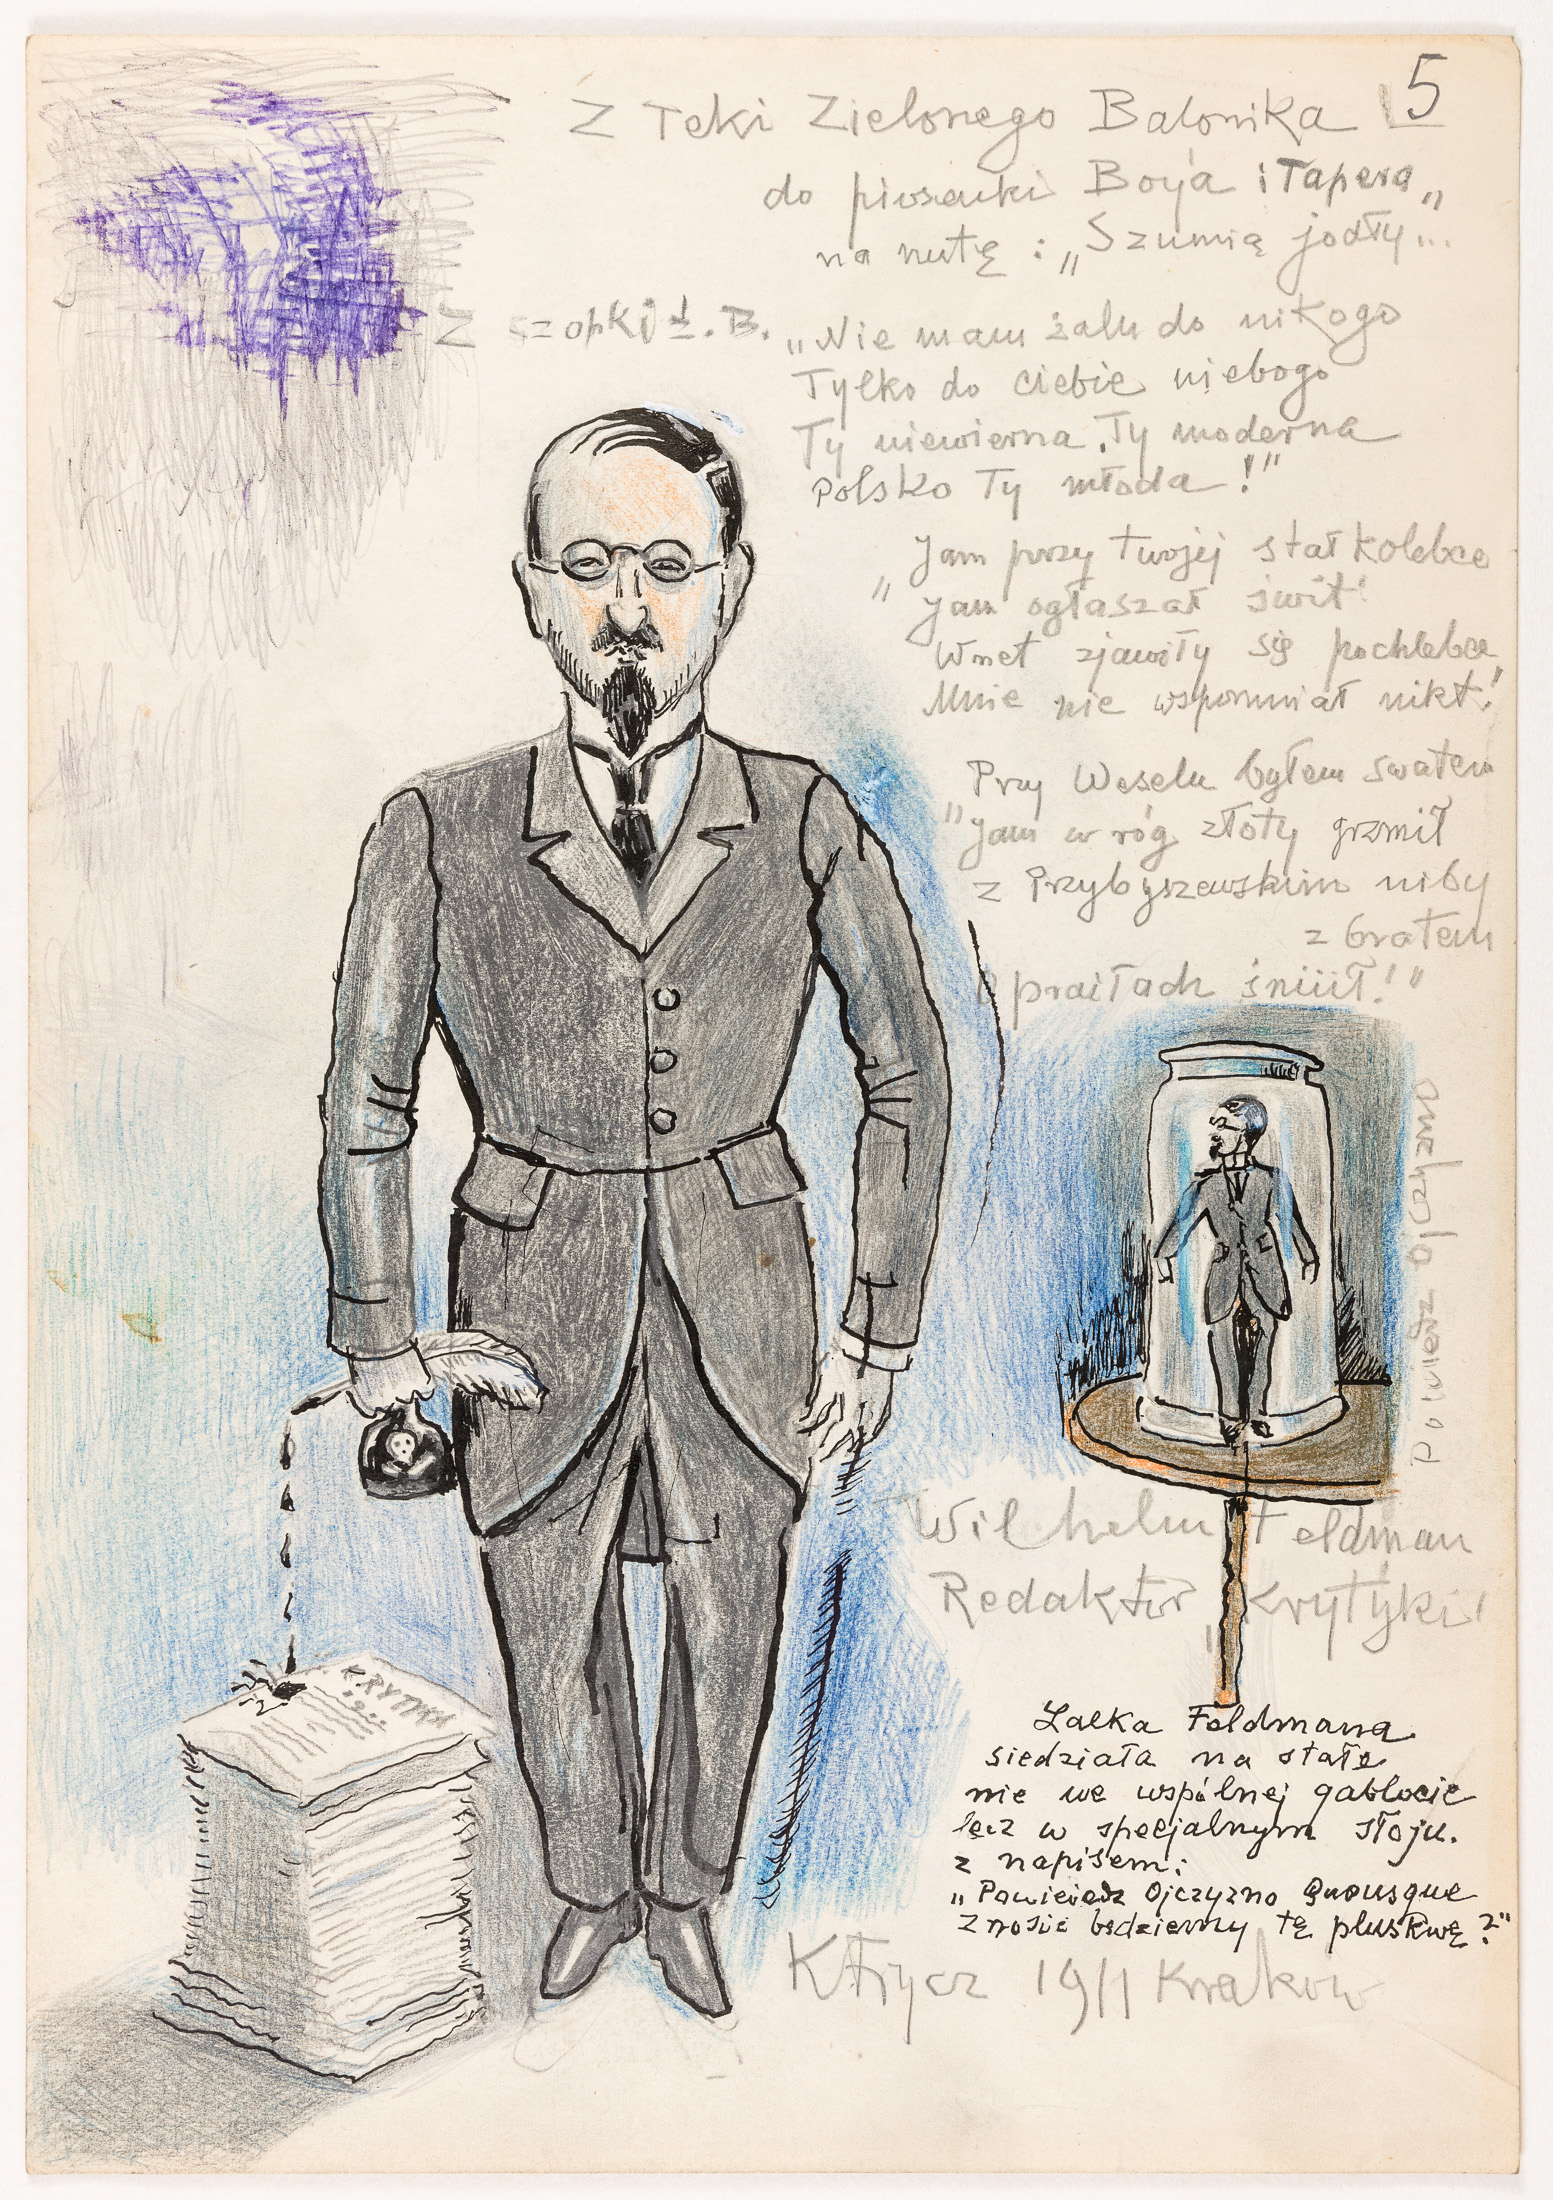 5
Z Teki Zielonego Balonika
do piosenki Boya i Tapera „
na nutę : „Szumią jodły...
Z szopki Z. B.
„Nie mam żalu do nikogo
Tylko do ciebie niebogo
Ty niewierna, Ty moderna
Polsko Ty młoda !"
Jam przy twojej stał kolebce
„ Jam ogłaszał świt!
Wnet zjawiły się pochlebce
Mnie nie wspomniał nikt!"
Przy Weselu byłem swatem
„Jam w róg złoty grzmił
z Przybyszewskim niby
z bratem
śniił!"
Powiedz ojczyzno
Wilhelm Feldman
Redaktor „Krytyki"
KRYTYKA
Lalka Feldmana
siedziała na stałe
nie we wspólnej gablocie
lecz w specjalnym słoju.
z napisem:
„Powiedz Ojczyzno Quousque
Znosić będziemy tę pluskwę?"
KFrycz 1911 Kraków